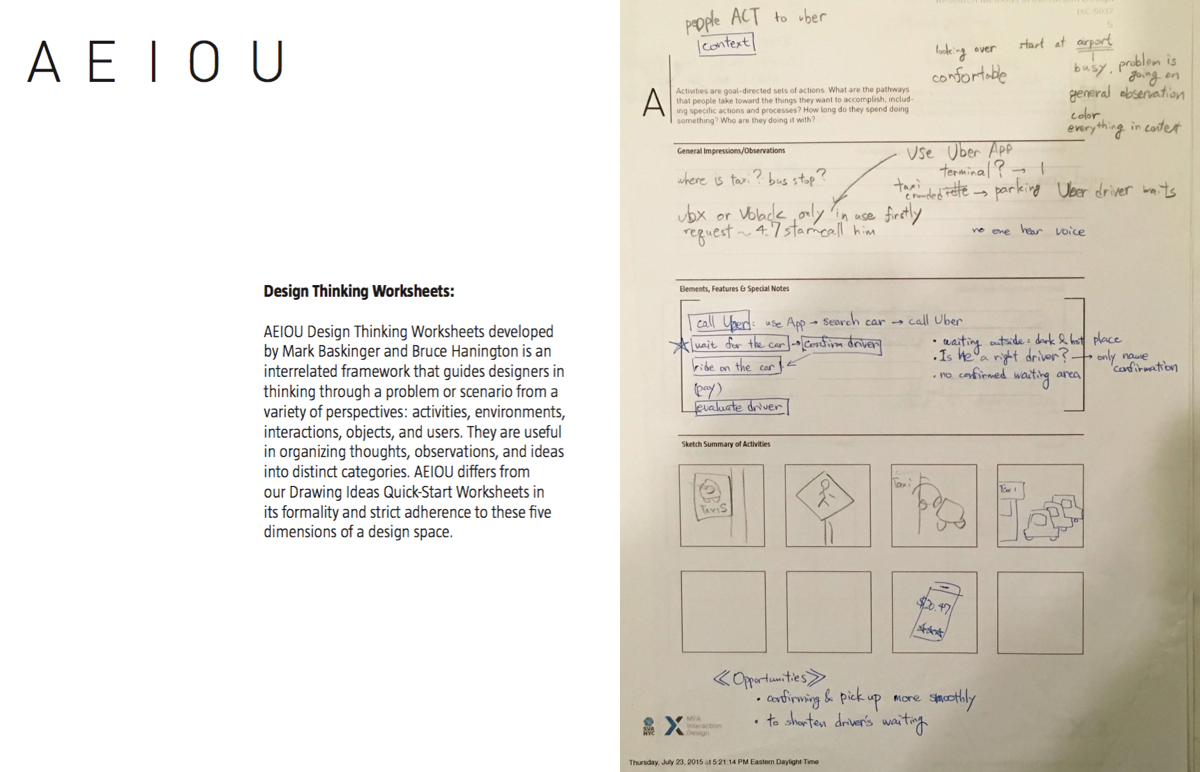 A E I O U
Design Thinking Worksheets:
AEIOU Design Thinking Worksheets developed
by Mark Baskinger and Bruce Hanington is an
interrelated framework that guides designers in
thinking through a problem or scenario from a
variety of perspectives: activities, environments,
interactions, objects, and users. They are useful
in organizing thoughts, observations, and ideas
into distinct categories. AEIOU differs from
our Drawing Ideas Quick-Start Worksheets in
its formality and strict adherence to these five
dimensions of a design space.
people ACT to uber
context
looking over
confortable
start at airport
busy, problem is
going on
general observation
color
everything in context
A
Activities are goal-directed sets of actions. What are the pathways
that people take toward the things they want to accomplish, includ-
ing specific actions and processes? How long do they spend doing
something? Who are they doing it with?
General Impressions/Observations
Use Uber App
where is taxi? bus stop?
terminal? → 1
taxi
crowded → parking Uber driver waits
only in use firstly
request ~ 4.7 star call him
no one hear voice
Elements, Features & Special Notes
call Uber: use App → search car → call Uber
wait for the car → confirm driver
ride on the car
(pay)
evaluate driver
• waiting outside: dark & hot place
• Is he a right driver? → only name
confirmation
• no confirmed waiting area
Sketch Summary of Activities
TAXIS
Taxi
Taxi
$20.47
≪Opportunities≫
• confirming & pick up more smoothly
• to shorten driver's waiting
SVA
NYC
MFA
Interaction
Design
Thursday, July 23, 2015 at 5:21:14 PM Eastern Daylight Time